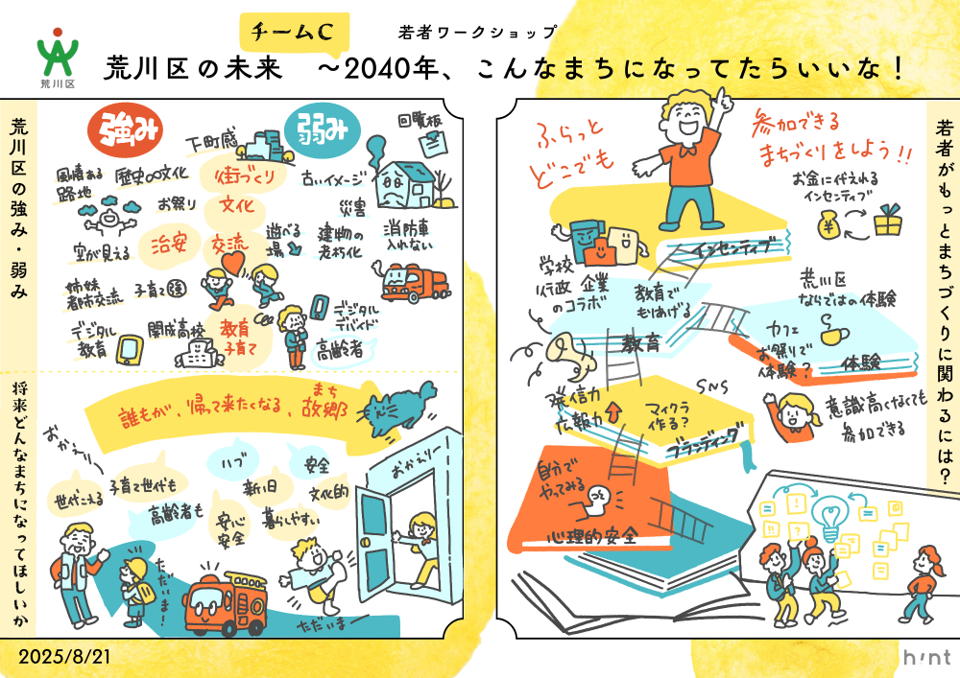 荒川区
チームC
若者ワークショップ
荒川区の未来 ～2040年、こんなまちになってたらいいな！
荒川区の強み・弱み
強み
弱み
下町感
回覧板
風情ある
路地
歴史の文化
街づくり
古いイメージ
お祭り
文化
災害
空が見える
治安
交流
遊べる
場
建物の
老朽化
消防車
入れない
姉妹
都市交流
子育て
デジタル
教育
開成高校
教育
子育て
デジタル
デバイド
高齢者
将来どんなまちになってほしいか
誰もが、帰って来たくなる、故郷
まち
おかえり
おかえりー
ハブ
安全
世代こえる
子育て世代も
新旧
文化的
高齢者も
安心
安全
暮らしやすい
ただいま！
ただいまー
若者がもっとまちづくりに関わるには？
ふらっと
どこでも
参加できる
まちづくりをしよう!!
お金に代えれる
インセンティブ
¥
インセンティブ
学校
行政 企業
のコラボ
教育で
もりあげる
荒川区
ならではの体験
教育
カフェ
お祭りで
体験？
体験
発信力
広報力
SNS
マイクラ
作る？
ブランディング
意識高くなくても
参加できる
自分で
やってみる
心理的安全
2025/8/21
hint